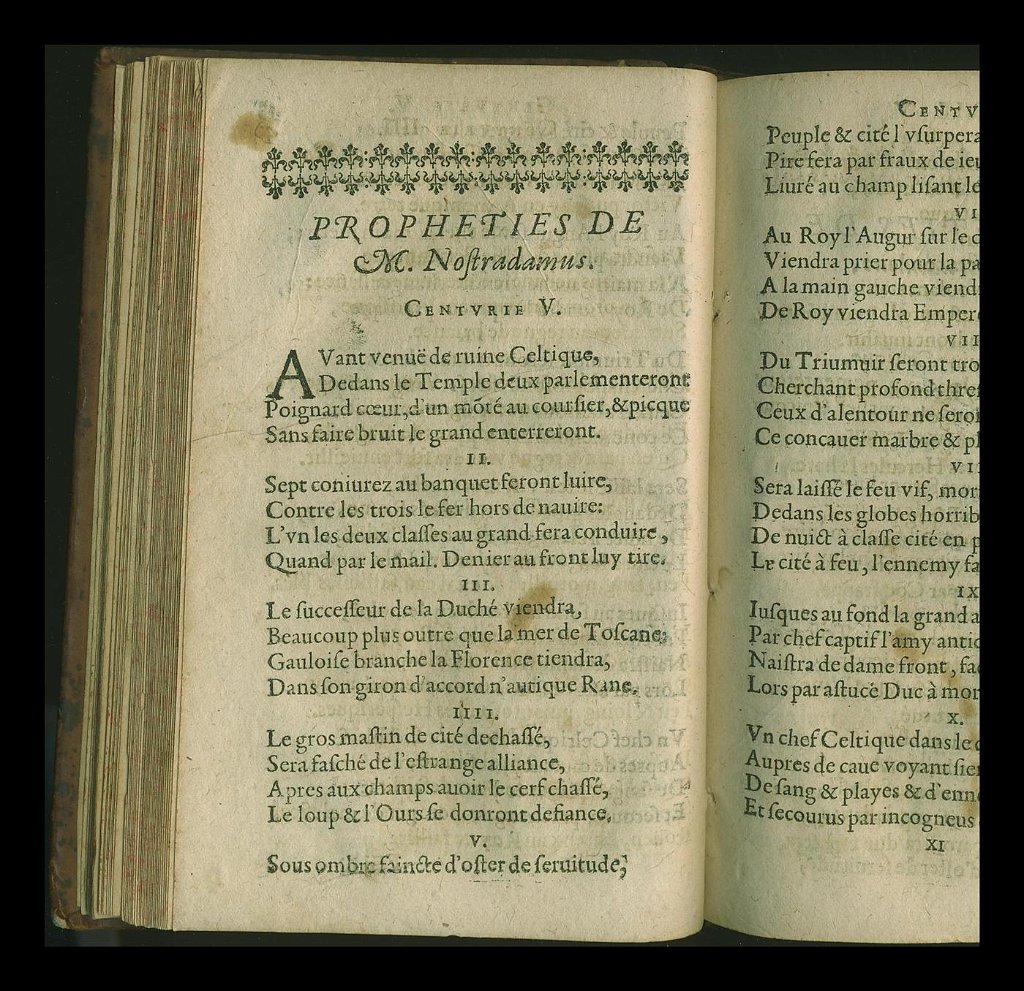 PROPHETIES DE
M. Noſtradamus.
CENTVRIE V.
AVant venuë de ruine Celtique,
Dedans le Temple deux parlementeront
Poignard cœur, d'un mõté au courſier, &picque
Sans faire bruit le grand enterreront.
II.
Sept coniurez au banquet feront luire,
Contre les trois le fer hors de nauire:
L'vn les deux claſſes au grand fera conduire,
Quand par le mail. Denier au front luy tire.
III.
Le ſucceſſeur de la Duché viendra,
Beaucoup plus outre que la mer de Toſcane;
Gauloiſe branche la Florence tiendra,
Dans ſon giron d'accord n'autique Rane.
IIII.
Le gros maſtin de cité dechaſſé,
Sera faſché de l'eſtrange alliance,
Apres aux champs auoir le cerf chaſſé,
Le loup & l'Ours ſe donront defiance.
V.
Sous ombre faincte d'oſter de ſeruitude,
CENTV
Peuple & cité l'vſurpera
Pire fera par fraux de ieu
Liuré au champ liſant le
VI
Au Roy l'Augur ſur le c
Viendra prier pour la pa
A la main gauche viend
De Roy viendra Emper
VII
Du Triumuir ſeront tro
Cherchant profond thre
Ceux d'alentour ne ſero
Ce concauer marbre & pl
VII
Sera laiſſé le feu vif, mor
Dedans les globes horrib
De nuict à claſſe cité en p
Le cité à feu, l'ennemy fa
IX
Iuſques au fond la grand a
Par chef captif l'amy antic
Naiſtra de dame front, fac
Lors par aſtuce Duc à mor
X.
Vn chef Celtique dans le c
Aupres de caue voyant ſie
De ſang & playes & d'enn
Et ſecourus par incogneus
XI